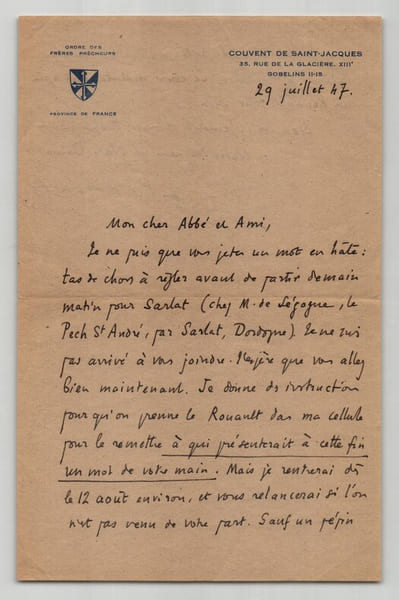 ORDRE DES
FRÈRES PRÊCHEURS
PROVINCE DE FRANCE
COUVENT DE SAINT-JACQUES
35, RUE DE LA GLACIÈRE, XIIIᵉ
GOBELINS 11-15
29 juillet 47.
Mon cher Abbé et Ami,
Je ne puis que vous jeter un mot en hâte :
tas de choses à régler avant de partir demain
matin pour Sarlat (chez M. de Ségogne, le
Pech St André, par Sarlat, Dordogne). Je ne suis
pas arrivé à vous joindre. J'espère que vous allez
bien maintenant. Je donne des instructions
pour qu'on prenne le Rouault dans ma cellule
pour le remettre à qui présenterait à cette fin
un mot de votre main. Mais je rentrerai dès
le 12 août environ, et vous relancerai si l'on
n'est pas venu de votre part. Sauf un pépin